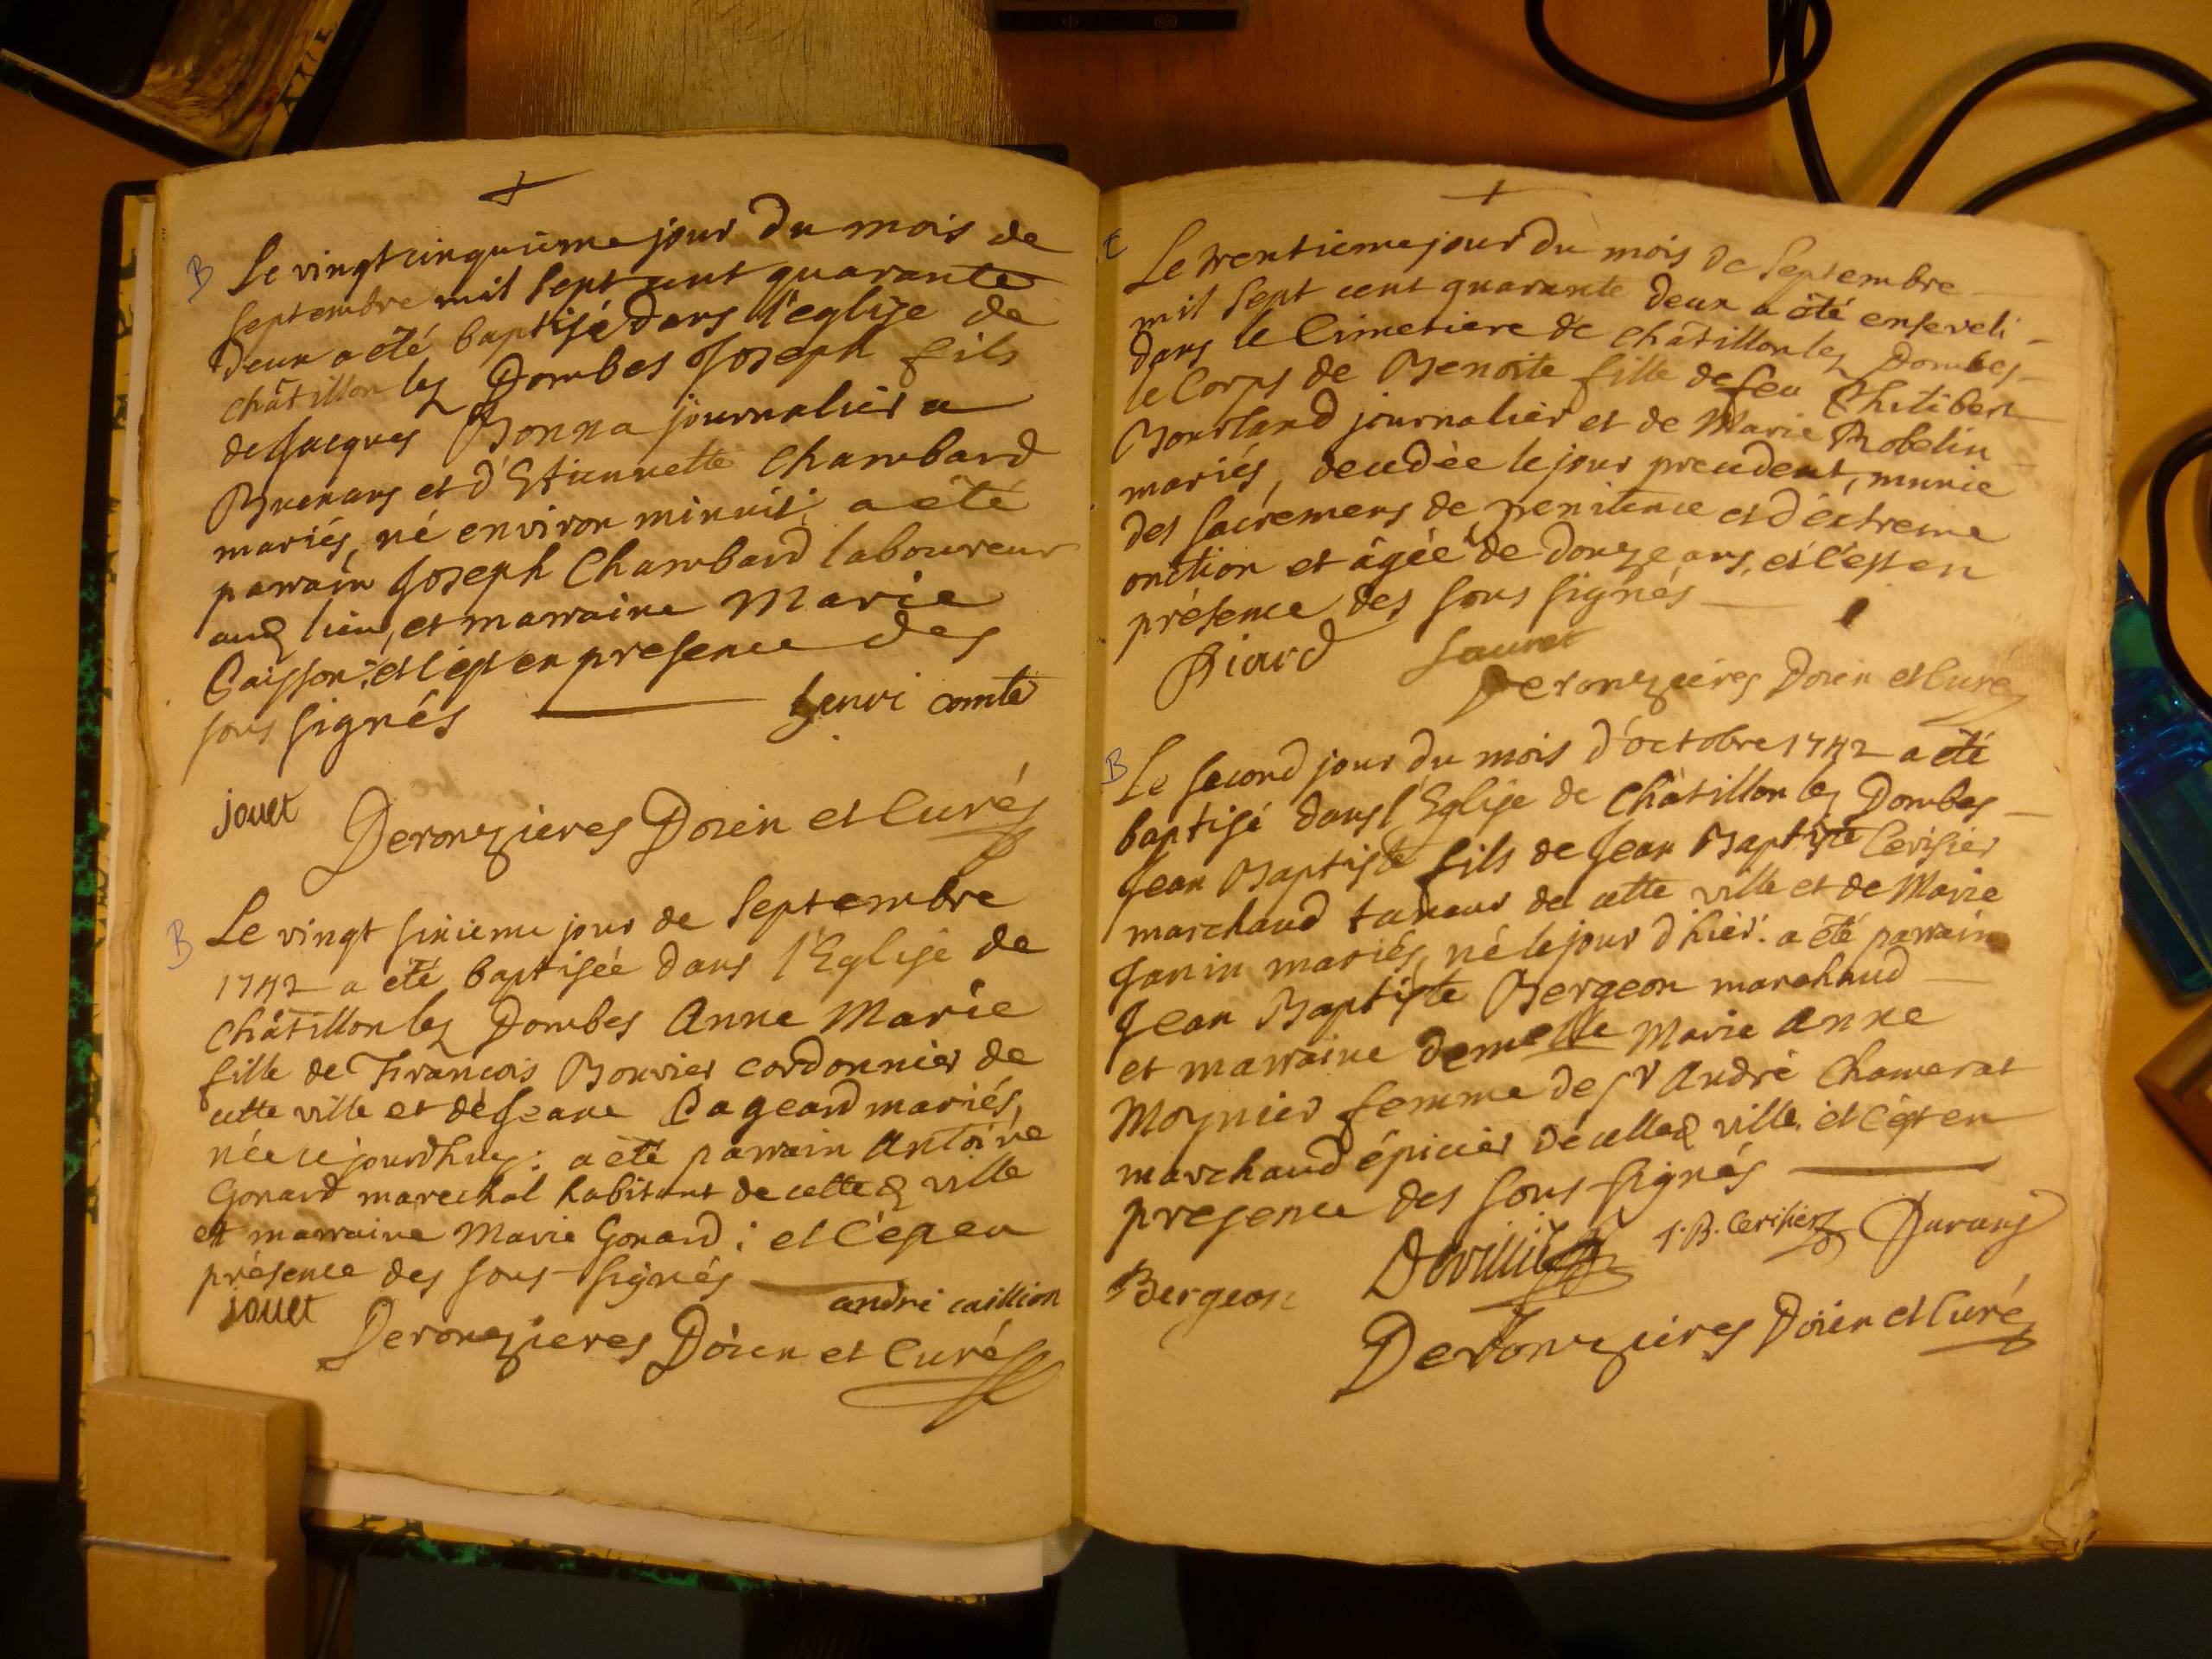 B Le vingt cinquieme jour du mois de
septembre mil sept cent quarante
deux a été baptisé dans l'eglise de
châtillon les Dombes Joseph fils
de Jacques Bonna journalier a
et d'Etiennette Chambard
mariés, né environ minuit; a été
parrain Joseph Chambard laboureur
aud lieu, et marraine Marie
et c'est en presence des
sous signés henri comte
jouet
Deronzieres Doïen et Curé
B Le vingt sixieme jour de septembre
1742 a été baptisée dans l'Eglise de
châtillon les Dombes Anne Marie
fille de François Bouvier cordonnier de
cette ville et de Jeane Pageaud mariés,
née ce jourdhuy: a été parrain Antoine
Gonard marechal habitant de cetted ville
et marraine Marie Gonard: et c'est en
présence des sous-signés
jouet andri caillion
Deronzieres Doïen et Curé
Le trentieme jour du mois de septembre
mil sept cent quarante deux a été enseveli
dans le Cimetiere de châtillon les Dombes
le Corps de Benoite fille de feu Philibert
journalier et de Marie Robelin
mariés, decedée le jour precedent, munie
des sacremens de penitence et d'éxtreme
onction et âgée de douze ans, et c'est en
présence des sous signés
Piard Sauret
Deronzieres Doïen et Curé
B Le second jour du mois d'octobre 1742 a été
baptisé dans l'Eglise de châtillon les Dombes
Jean Baptiste fils de Jean Baptiste Cerisier
marchand taneur de cette ville et de Marie
Janin mariés, né le jour d'hier. a été parrain
Jean Baptiste Bergeon marchand
et marraine demelle Marie Anne
Moynier femme de sr André Chamerat
marchand épicier de celled ville. et c'est en
presence des sous-signés
J. B. Cerisier Durand
Bergeon
Deronzieres Doïen et Curé